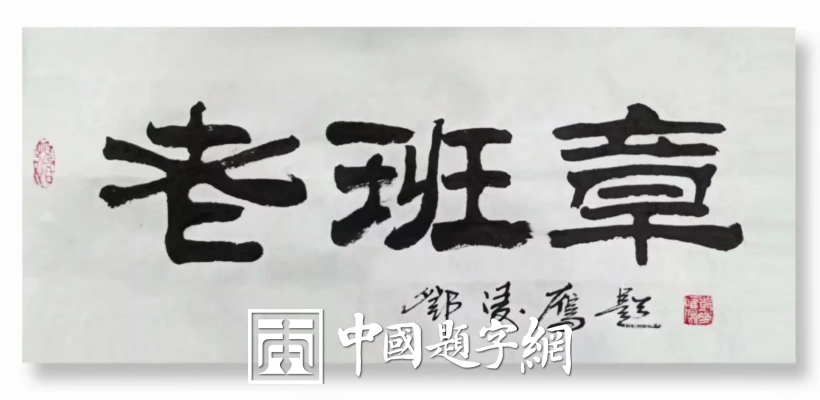 老班章
鄧凌鷹題
中國題字網